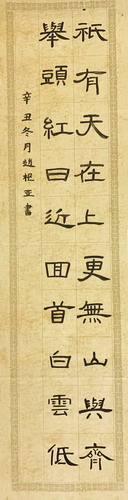 祇有天在上更無山與齊
舉頭紅日近回首白雲低
辛丑冬月趙柅亚書